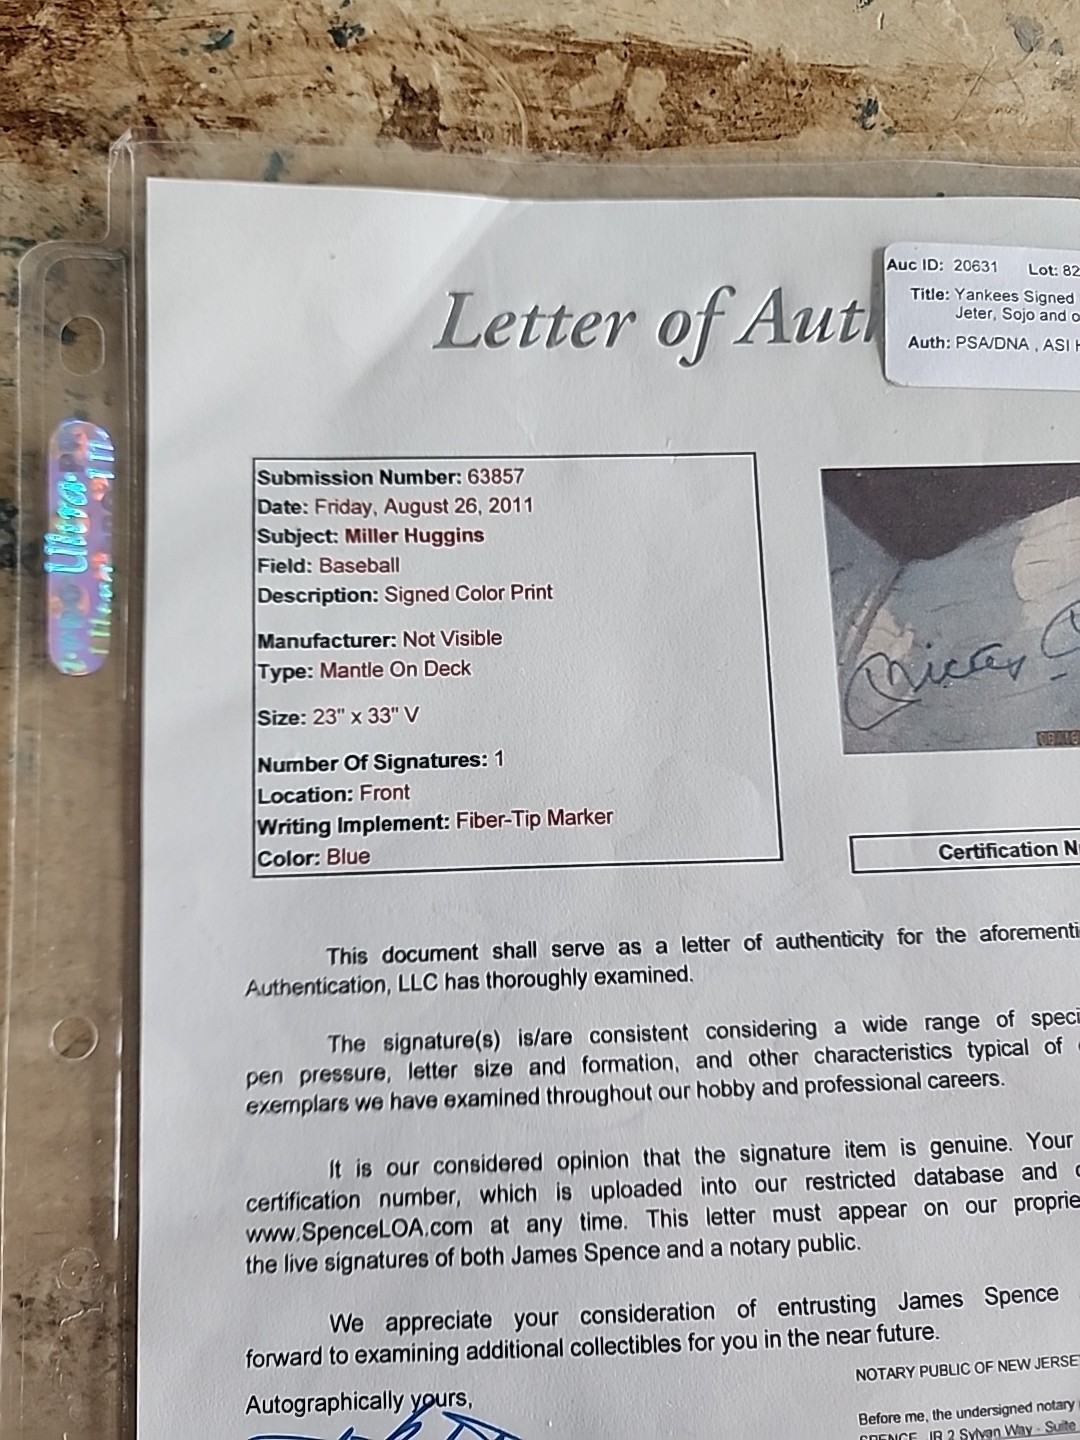 Letter of Auth
Auc ID: 20631 Lot: 82
Title: Yankees Signed
Jeter, Sojo and o
Auth: PSA/DNA , ASI H
Ultra PRO
Submission Number: 63857
Date: Friday, August 26, 2011
Subject: Miller Huggins
Field: Baseball
Description: Signed Color Print
Manufacturer: Not Visible
Type: Mantle On Deck
Size: 23" x 33" V
Number Of Signatures: 1
Location: Front
Writing Implement: Fiber-Tip Marker
Color: Blue
Mickey
Certification N
This document shall serve as a letter of authenticity for the aforementi
Authentication, LLC has thoroughly examined.
The signature(s) is/are consistent considering a wide range of speci
pen pressure, letter size and formation, and other characteristics typical of
exemplars we have examined throughout our hobby and professional careers.
It is our considered opinion that the signature item is genuine. Your
certification number, which is uploaded into our restricted database and
www.SpenceLOA.com at any time. This letter must appear on our proprie
the live signatures of both James Spence and a notary public.
We appreciate your consideration of entrusting James Spence
forward to examining additional collectibles for you in the near future.
Autographically yours,
NOTARY PUBLIC OF NEW JERSE
Before me, the undersigned notary
SPENCE, JR 2 Sylvan Way - Suite